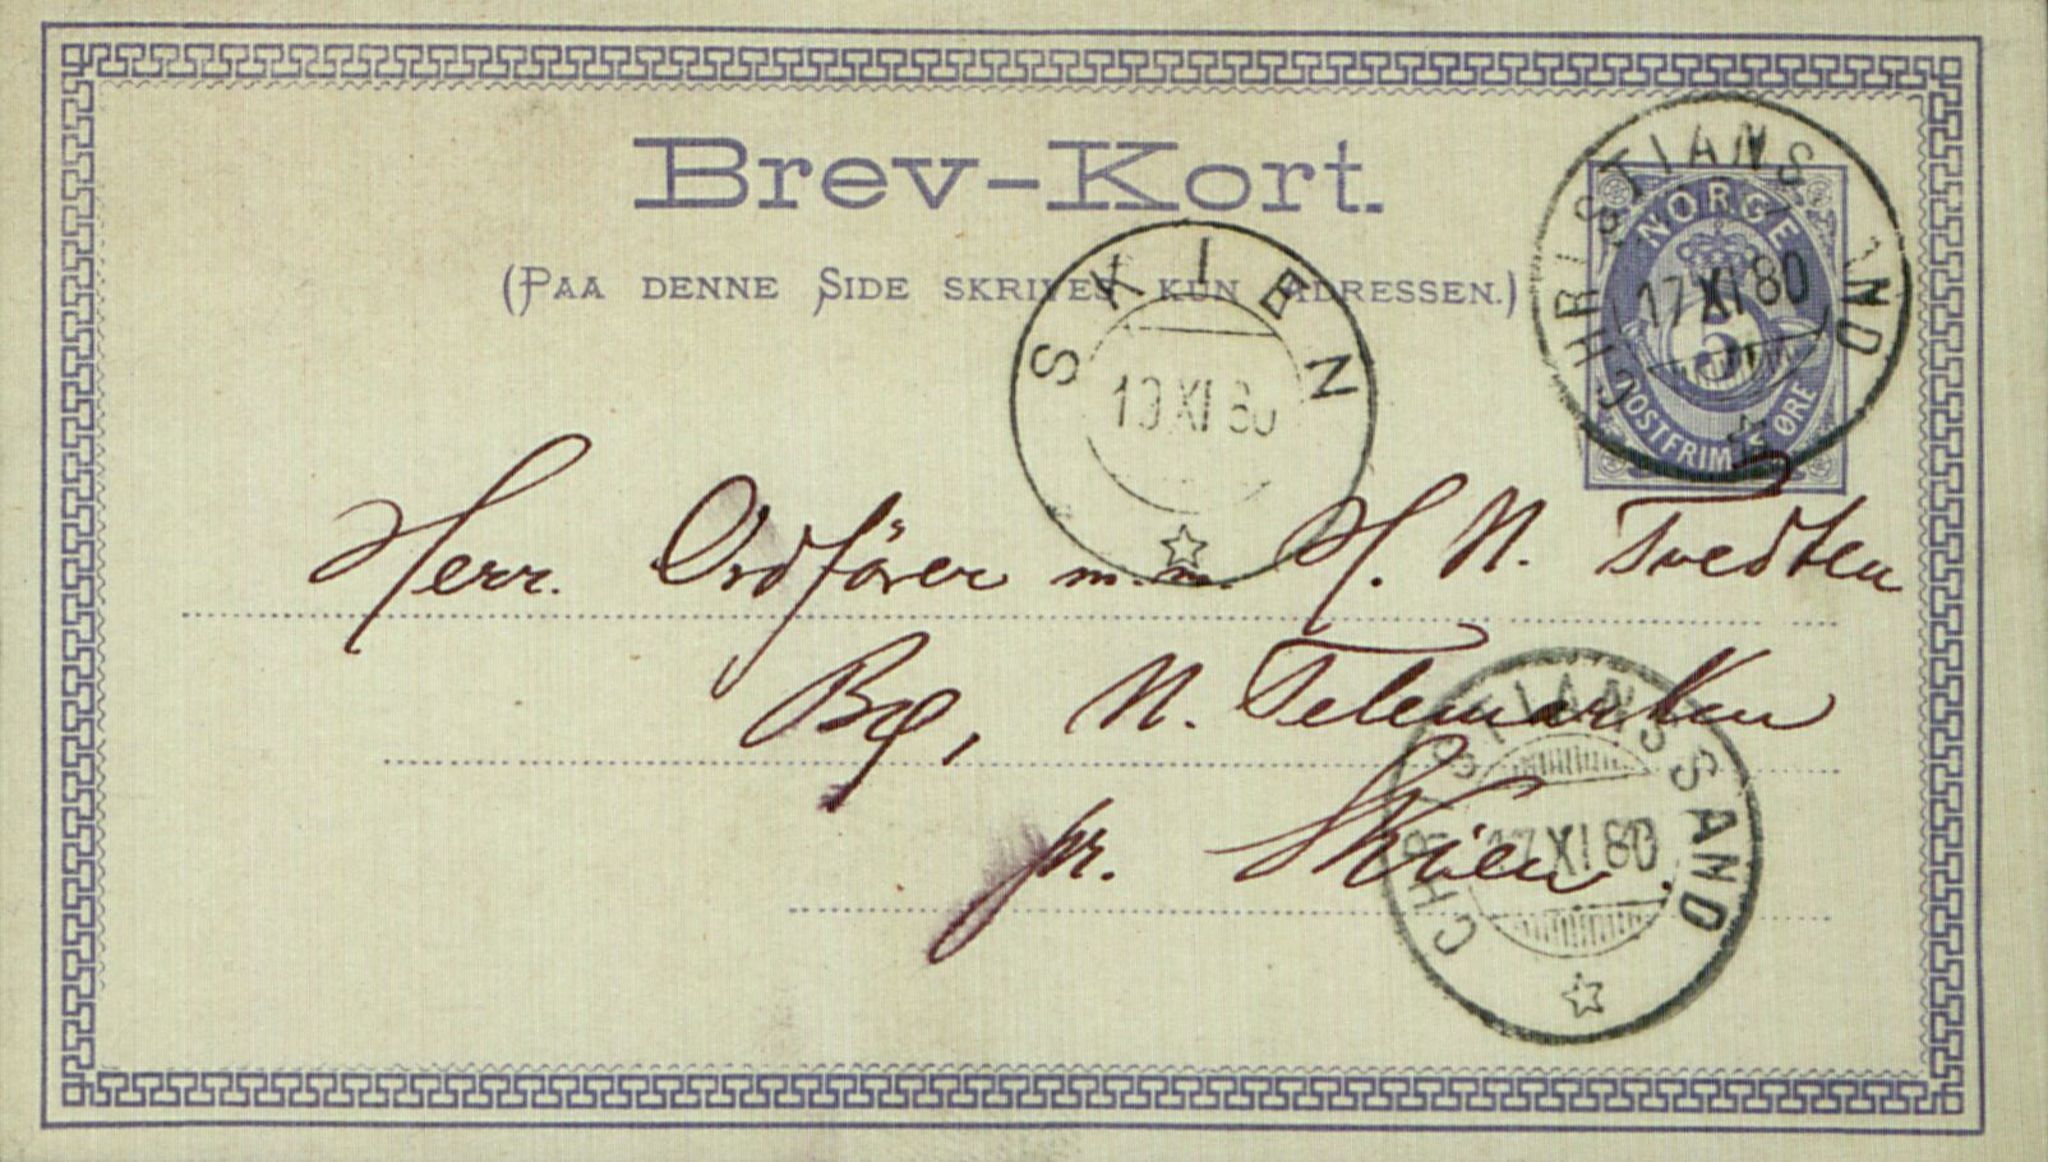 Brev-Kort.
(Paa denne Side skrives kun Adressen.)
NORGE
5
POSTFRIM. 5 ØRE
CHRISTIANSSAND
17 XI 80
SKIEN
19 XI 80
Herr. Ordförer m.m. H. N. Tvedten
Bø, N. Telemarken
pr. Skien.
CHRISTIANSSAND
17 XI 80